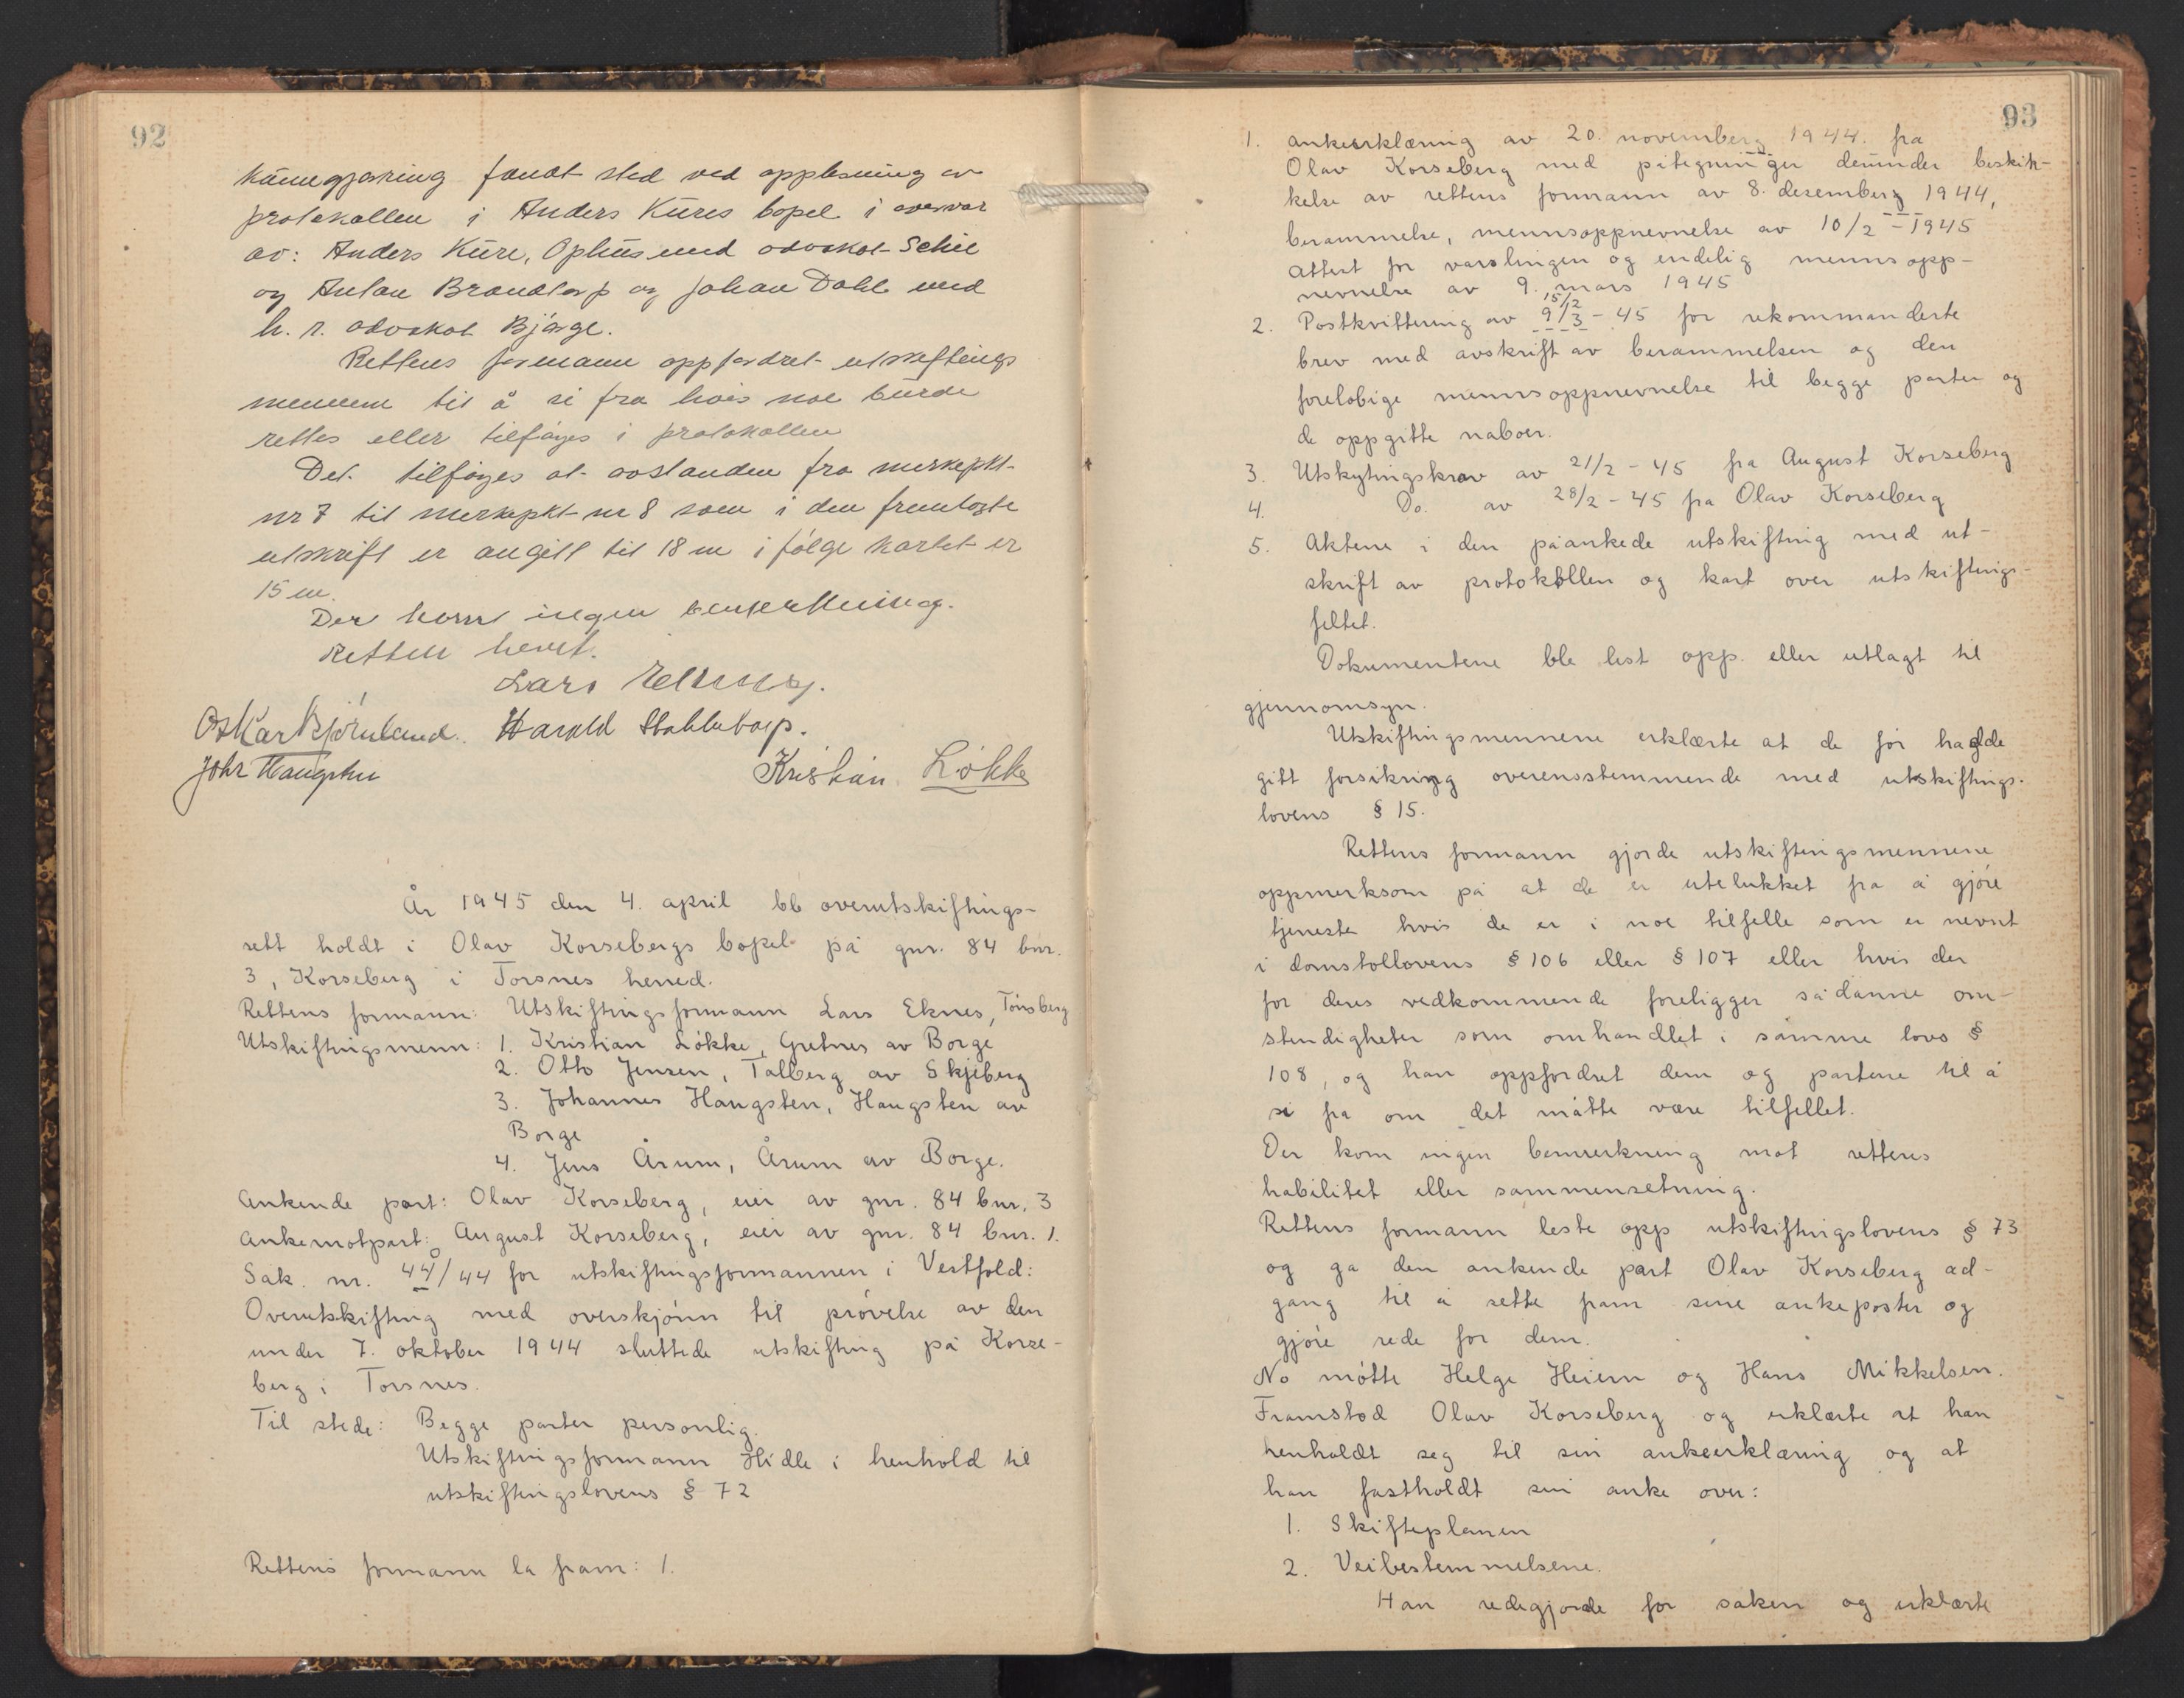 92
fandt sted ved opplesning av
protokollen i Anders Kures bopel i overvær
av: Anders Kure, Ophus med advokat Schie
og Anton Brandtorp og Johan Dahl med
h. r. advokat Bjørge.
Rettens formann oppfordret utskiftings
mennene til å si fra hvis noe burde
rettes eller tilføyes i protokollen
Det tilføyes at avstanden fra merkepkt.
nr 7 til merkepkt nr 8 som i den fremlagte
utskrift er angitt til 18 m ifølge kartet er
15 m.
Der kom ingen bemerkning.
Retten hevet.
Lars Eknes.
Oskar Bjørnland. Harald Stokketorp.
Joh. Haugsten Kristian Løkke
År 1945 den 4. april ble overutskiftings-
rett holdt i Olav Korsebergs bopel på gnr. 84 bnr.
3, Korseberg i Torsnes herred.
Rettens formann: Utskiftingsformann Lars Eknes, Tønsberg
Utskiftingsmenn: 1. Kristian Løkke, Grefnes av Borge
2. Otto Jensen, Talberg av Skjeberg
3. Johannes Haugsten, Haugsten av
Borge
4. Jens Årum, Årum av Borge.
Ankende part: Olav Korseberg, eier av gnr. 84 bnr. 3
Ankemotpart: August Korseberg, eier av gnr. 84 bnr. 1.
Sak. nr. 44/44 for utskiftingsformannen i Vestfold:
Overutskifting med overskjønn til prøvelse av den
under 7. oktober 1944 sluttede utskifting på Korse-
berg i Torsnes.
Til stede: Begge parter personlig.
Utskiftingsformann Hidle i henhold til
utskiftingslovens § 72
Rettens formann la fram: 1.
93
1. Ankeerklæring av 20. november 1944. fra
Olav Korseberg med påtegninger derunder beskik-
kelse av rettens formann av 8. desember 1944,
berammelse, mennsoppnevnelse av 10/2 - 1945
Attest for varslingen og endelig mennsopp-
nevnelse av 9. mars 1945
15/2
2. Postkvittering av 9/3 - 45 for rekommanderte
brev med avskrift av berammelsen og den
foreløbige mennsoppnevnelse til begge parter og
de oppgitte naboer.
3. Utskytingskrav av 21/2 - 45 fra August Korseberg
4. Do. av 28/2 - 45 fra Olav Korseberg
5. Aktene i den påankede utskifting med ut-
skrift av protokollen og kart over utskiftings-
feltet.
Dokumentene ble lest opp. eller utlagt til
gjennomsyn.
Utskiftingsmennene erklærte at de før hadde
gitt forsikring overensstemmende med utskiftings-
lovens § 15.
Rettens formann gjorde utskiftingsmennene
oppmerksom på at de er utelukket fra å gjøre
tjeneste hvis de er i noe tilfelle som er nevnt
i domstollovens § 106 eller § 107 eller hvis der
for deres vedkommende foreligger sådanne om-
stendigheter som omhandlet i samme lovs §
108, og han oppfordret dem og partene til å
si fra om det måtte være tilfellet.
Der kom ingen bemerkning mot rettens
habilitet eller sammensetning.
Rettens formann leste opp utskiftingslovens § 73
og ga den ankende part Olav Korseberg ad-
gang til å sette fram sine ankeposter og
gjøre rede for dem.
No møtte Helge Heiem og Hans Mikkelsen.
Framstod Olav Korseberg og erklærte at han
henholdt seg til sin ankeerklæring og at
han fastholdt sin anke over:
1. Skifteplanen
2. Veibestemmelsene.
Han redegjorde for saken og erklærte